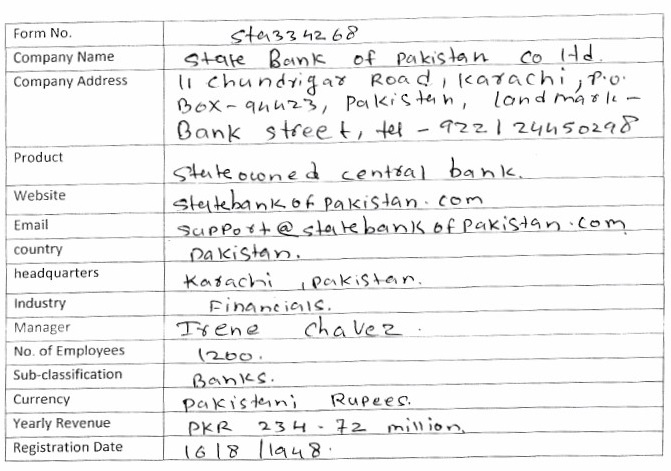 Form No. Sta334268
Company Name State Bank of Pakistan Co ltd.
Company Address 11 chundrigar Road, Karachi, P.O.
Box-94423, Pakistan, landmark -
Bank street, tel - 922124450298
Product State owned central bank.
Website statebankofpakistan.com
Email support@statebankofpakistan.com
country Pakistan.
headquarters Karachi, Pakistan.
Industry Financials.
Manager Irene Chavez.
No. of Employees 1200.
Sub-classification Banks.
Currency Pakistani Rupees.
Yearly Revenue PKR 234.72 million.
Registration Date 1618/1948.